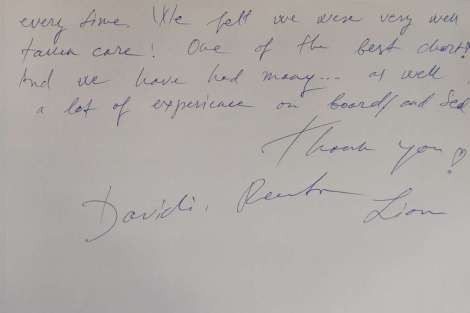 every time. We felt we were very well
taken care! One of the best charters!
And we have had many... as well
a lot of experience on board/and sea
Thank you
Davidi, Reuben
Lion